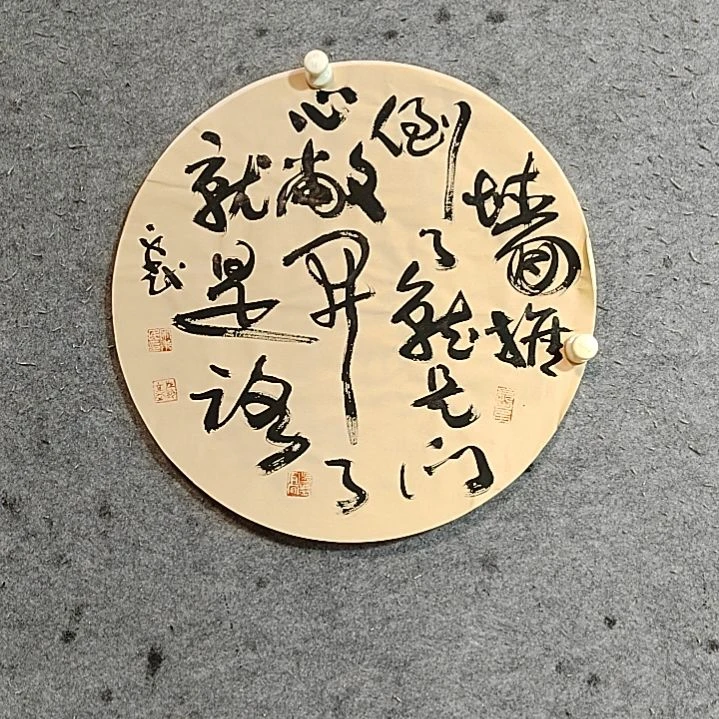 墙推
倒了就是门
心敞开了
就是路